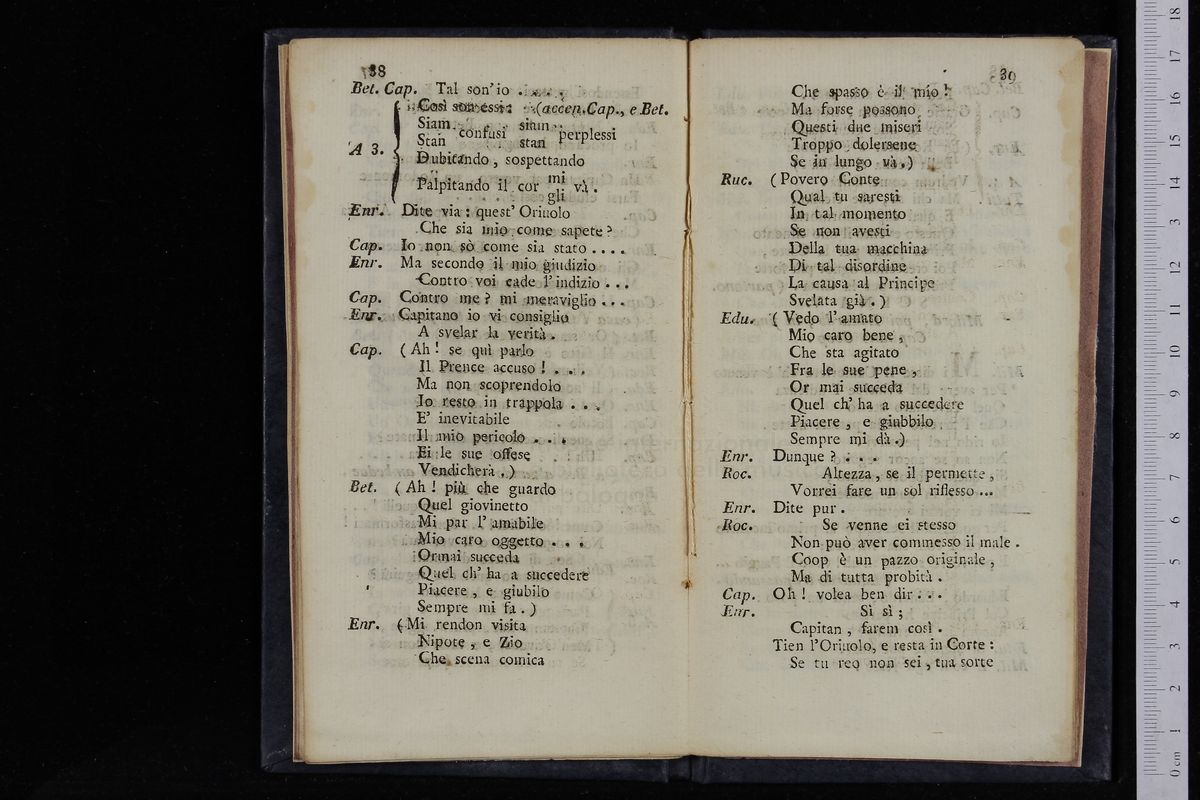 38
Bet. Cap. Tal son' io . . . .
Così son essi: (accen. Cap., e Bet.
'A 3.
Siam confusi siam perplessi
Stan stan
Dubitando, sospettando
Palpitando il cor mi và.
gli
Enr. Dite via: quest' Oriuolo
Che sia mio come sapete?
Cap. Io non sò come sia stato . . . .
Enr. Ma secondo il mio giudizio
Contro voi cade l' indizio . . .
Cap. Contro me? mi meraviglio . . .
Enr. Capitano io vi consiglio
A svelar la verità.
Cap. (Ah! se quì parlo
Il Prence accuso! . . .
Ma non scoprendolo
Io resto in trappola . . .
E' inevitabile
Il mio pericolo . . .
Ei le sue offese
Vendicherà.)
Bet. (Ah! più che guardo
Quel giovinetto
Mi par l' amabile
Mio caro oggetto . . .
Ormai succeda
Quel ch' ha a succedere
Piacere, e giubilo
Sempre mi fa.)
Enr. (Mi rendon visita
Nipote, e Zio
Che scena comica
39
Che spasso è il mio!
Ma forse possono
Questi due miseri
Troppo dolersene
Se in lungo và.)
Ruc. (Povero Conte
Qual tu saresti
In tal momento
Se non avesti
Della tua macchina
Di tal disordine
La causa al Principe
Svelata già.)
Edu. (Vedo l' amato
Mio caro bene,
Che sta agitato
Fra le sue pene,
Or mai succeda
Quel ch' ha a succedere
Piacere, e giubbilo
Sempre mi dà.)
Enr. Dunque? . . .
Roc. Altezza, se il permette,
Vorrei fare un sol riflesso ...
Enr. Dite pur.
Roc. Se venne ei stesso
Non può aver commesso il male.
Coop è un pazzo originale,
Ma di tutta probità.
Cap. Oh! volea ben dir . . .
Enr. Sì sì;
Capitan, farem così.
Tien l'Oriuolo, e resta in Corte:
Se tu reo non sei, tua sorte
0 cm 1 2 3 4 5 6 7 8 9 10 11 12 13 14 15 16 17 18